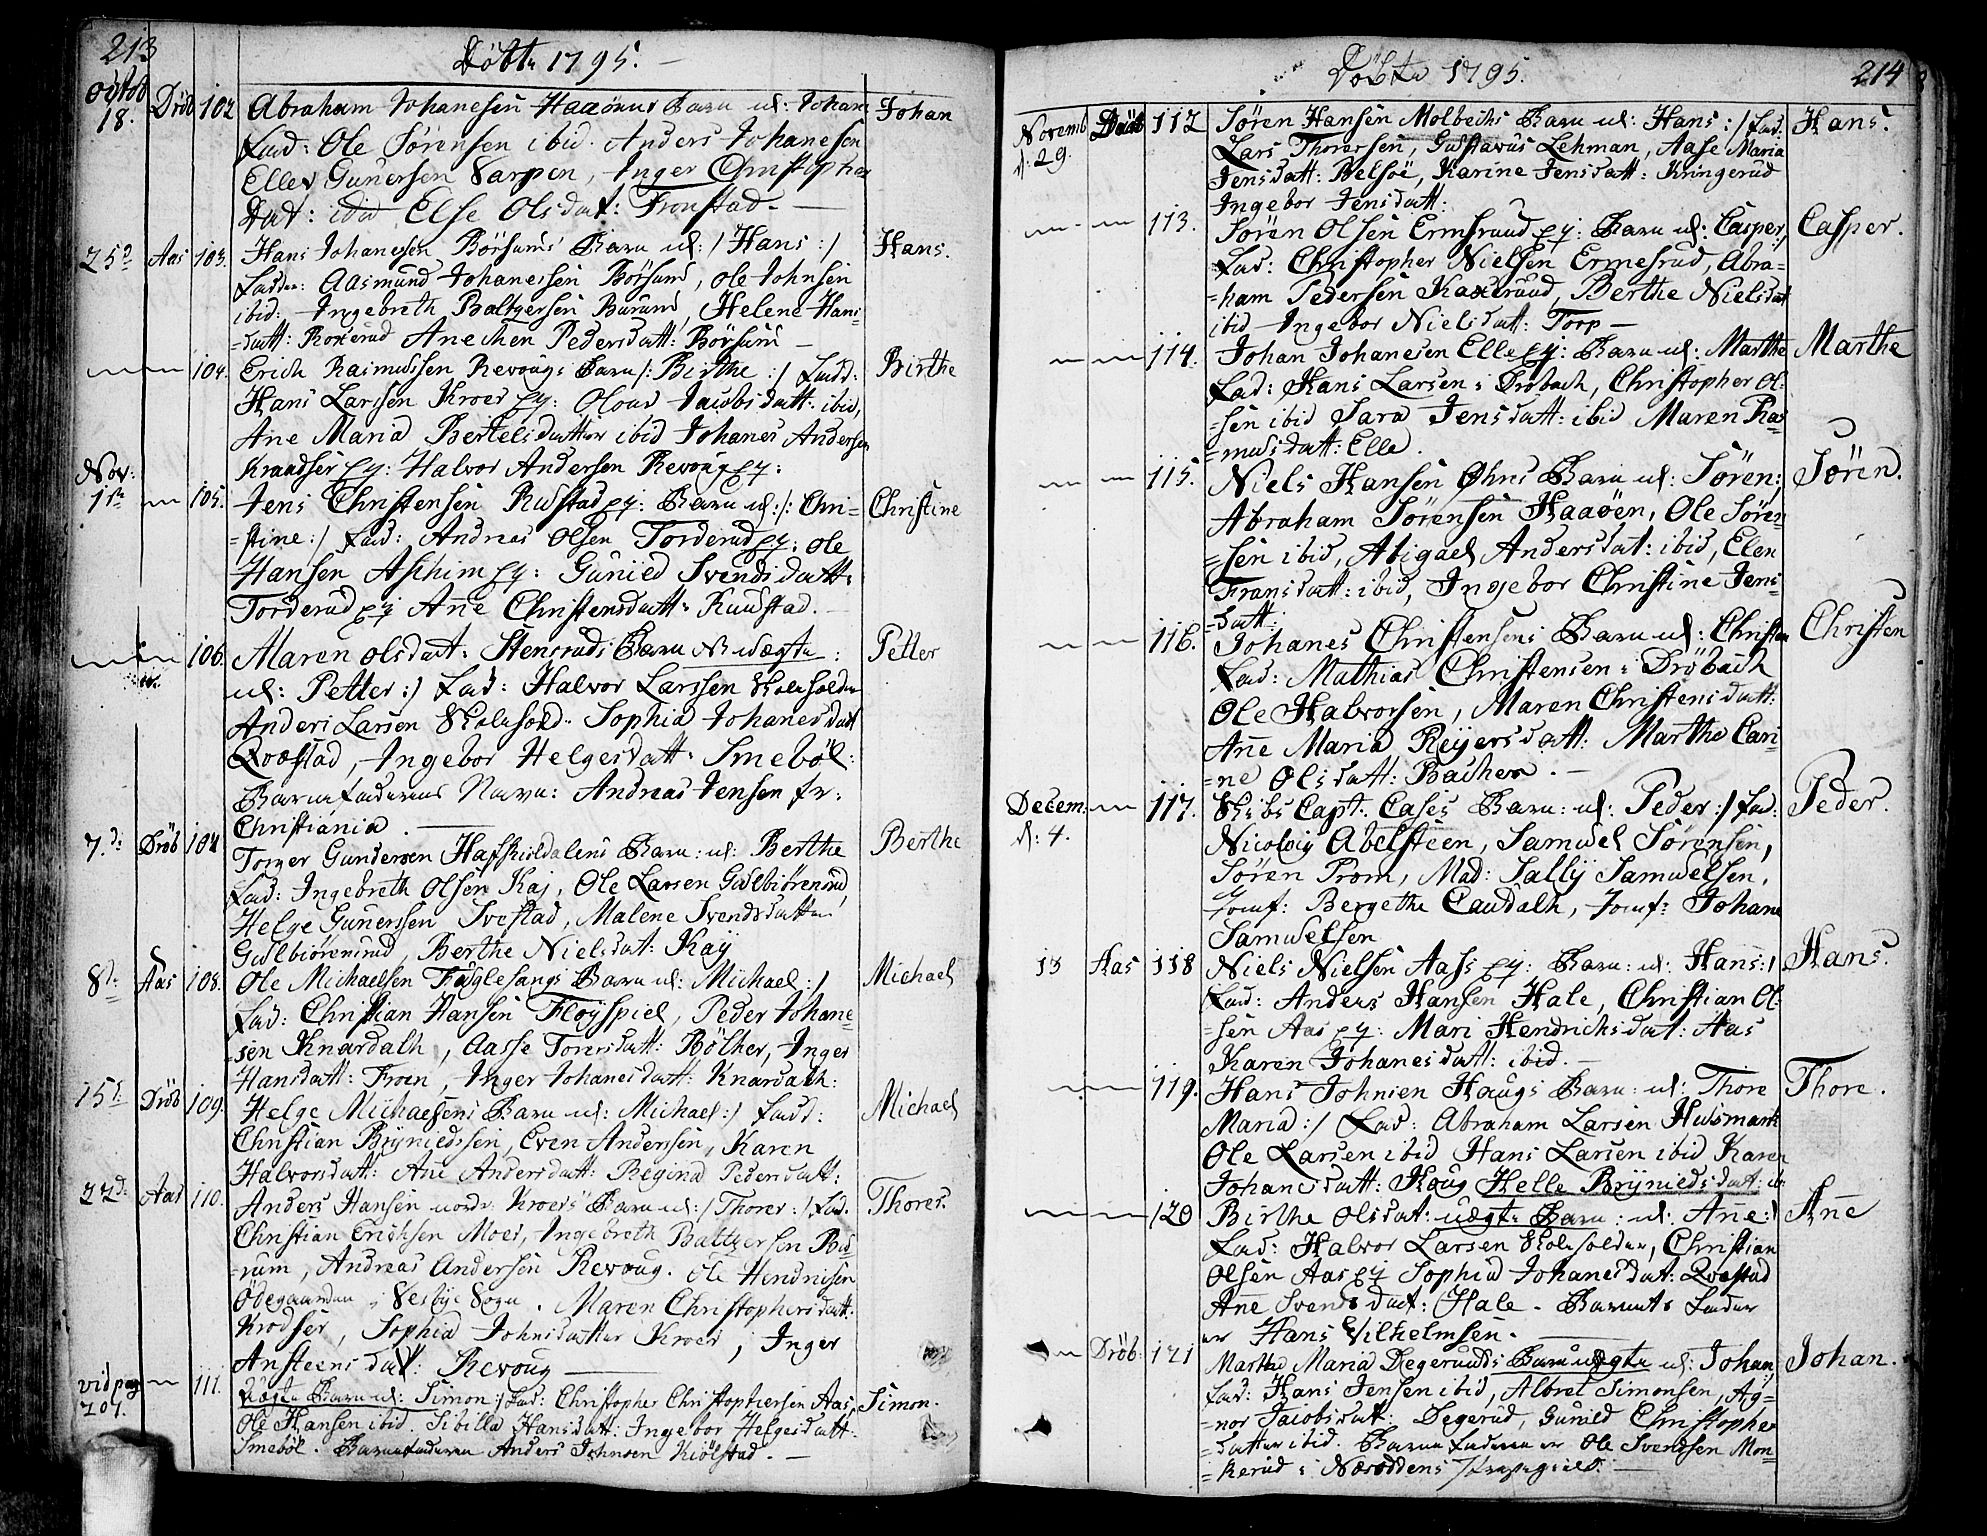 213
Döbte 1795.
Octob 18. Dröb 102 Abraham Johanesen Haaöens Barn n: Johan Johan
Fad: Ole Sörensen ibid. Anders Johanesen
Elle, Gunersen Sarpen, Inger Christopher
Dat: ibid Else Olsdat: Fronstad.
25de Aas 103. Hans Johanesen Börsums Barn n: / Hans : / Hans.
Fad: Aasmund Johanessen Börsum, Ole Johnsen
ibid: Ingebreth Baltzersen Burum, Helene Hans
=datt: Anechen Pedersdatt: Börsum
104. Erich Rasmussen Revougs Barn /: Birthe : / Fadd: Birthe
Hans Larssen Kroer Ey: Jacobsdatt: ibid,
Ane Maria Bertelsdatter ibid Johanes Andersen
Kraadser Ey: Halvor Andersen Revoug Ey:
Nov: 1ste 105. Jens Christensen Rustad Ey: Barn n: /: Chri= Christine
=stine : / Fad: Andreas Olsen Torderud Ey: Ole
Hansen Aschim Ey: Gunild Svendsdatt:
Torderud Ey Ane Christensdatt: Ruudstad.
106. Maren Olsdat: Stensruds Barn uægte : Petter
n: Petter : / Fad: Halvor Larssen Skoleholder
Anders Larsen Skolehold: Sophia Johanesdatt
Qvæstad, Ingebor Helgesdatt: Smebøl:
Barnefaderens Navn: Andreas Jensen fr:
Christiania.
7.de Dröb 107 Torger Gundersen Barn: n: Berthe Berthe
Fad: Ingebreth Olsen Kaj, Ole Larsen
Helge Gunerssen Svestad, Malene Svendsdatter
Berthe Nielsdat: Kaÿ
8de Aas 108. Ole Michaelsen Fuglesangs Barn n: Michael : / Michael
Fad: Christian Hansen Fløyspiel, Peder Johane=
=sen Knardalh, Aasse Toresdatt: Bölher, Inger
Hansdatt: Froen, Inger Johanesdatt: Knardalh:
15de Dröb 109. Helge Michaelsens Barn n: Michael : / Fadd: Michael
Christian Brÿnieldssen, Even Andersen, Karen
Halvorsdatt: Ane Andersdatt: Regina Pedersdatt:
22de Aas 110. Anders Hansen nordr Kroers Barn n: / Thorer : / Fad. Thorer.
Christian Erichsen Moer, Ingebreth Baltzersen Bu=
=rum, Andreas Andersen Revoug. Ole Hendrichsen
Ödegaarden i Vesbye Sogn. Maren Christophersdatt:
Krodser, Sophia Johnsdatter Kroer, Inger
Ansteensdat: Revoug
vid pag 207. 111. Uægte Barn n: Simon : / Fad: Christopher Christophersen Aas, Simon.
Ole Hansen ibid. Sibilla Hansdatt: Ingebor Helgesdatt:
Smebøl. Barnefaderen Anders Johnsen Kiölstad.
Döbte 1795.
214
Novemb d: 29. Dröb 112 Sören Hansen Molbechs Barn n: Hans : / Fad. Hans.
Lars Thorersen, Gustavus Lehman, Aase Maria
Jensdatt: Belsöe, Karine Jensdatt: Kringerud
Ingebor Jensdatt:
113. Sören Olsen Ermsruud Ey: Barn n: Casper : / Casper.
Fad: Christopher Nielsen Ermesrud, Abra=
=ham Pedersen Kaxeruud, Berthe Nielsdat
ibid Ingebor Nielsdatt: Torp
114. Johan Johanesen Elle Ey: Barn n: Marthe Marthe
Fad: Hans Larsen i Dröbach, Christopher Ol=
=sen ibid Sara Jensdatt: ibid Maren Ras=
=musdatt: Elle.
115. Niels Hansen Øhrs Barn n: Sören: Sören.
Abraham Sörensen Haaöen, Ole Sören=
=sen ibid, Abigael Andersdat: ibid, Elen
Fransdatt: ibid, Ingebor Christine Jens
=datt:
116. Johanes Christensens Barn n: Christen Christen
Fad: Mathias Christensen i Dröbach
Ole Halvorsen, Maren Christensdatt:
Ane Maria Reÿersdatt: Marthe Cari=
=ne Olsdatt: Bachen.
Decem. d: 4. 117. Skibs Capt. Cases Barn: n: Peder : / Fad: Peder.
Nicolaÿ Abelsteen, Samuel Sörensen,
Sören Prom, Mad: Sallÿ Samuelsen,
Jomf: Bergethe Caudalh, Jomf: Johane
Samuelsen
13 Aas 118 Niels Nielsen Aass Ey: Barn: n: Hans : / Hans.
Fad: Anders Hansen Hale, Christian Ol=
=sen Aas Ey: Mari Hendrichsdat: Aas
Karen Johanesdatt: ibid.
119. Hans Johnsen Hougs Barn: n: Thore Thore.
Maria : / Fad: Abraham Larsen Husmand
Ole Larsen ibid Hans Larsen ibid Karen
Johanesdatt: Houg Helle Brÿnieldsdatt: ib.
120 Birthe Olsdat: uægte Barn: n: Ane : / Ane
Fad: Halvor Larsen Skoleholder, Christian
Olsen Aas Ey Sophia Johanesdat: Qvæstad
Ane Svendsdat: Hale. Barnets Fader
er Hans Vilhelmsen.
Dröb: 121 Marthe Maria Degeruuds Barn uægte n: Johan: Johan.
Fad: Hans Jensen ibid, Albret Simonsen, Ag=
=nor Jacobsdat: Degerud, Gunild Christopher
=datter ibid. Barnefaderen er Ole Svendsen Mon=
=kerud i Næsoddens